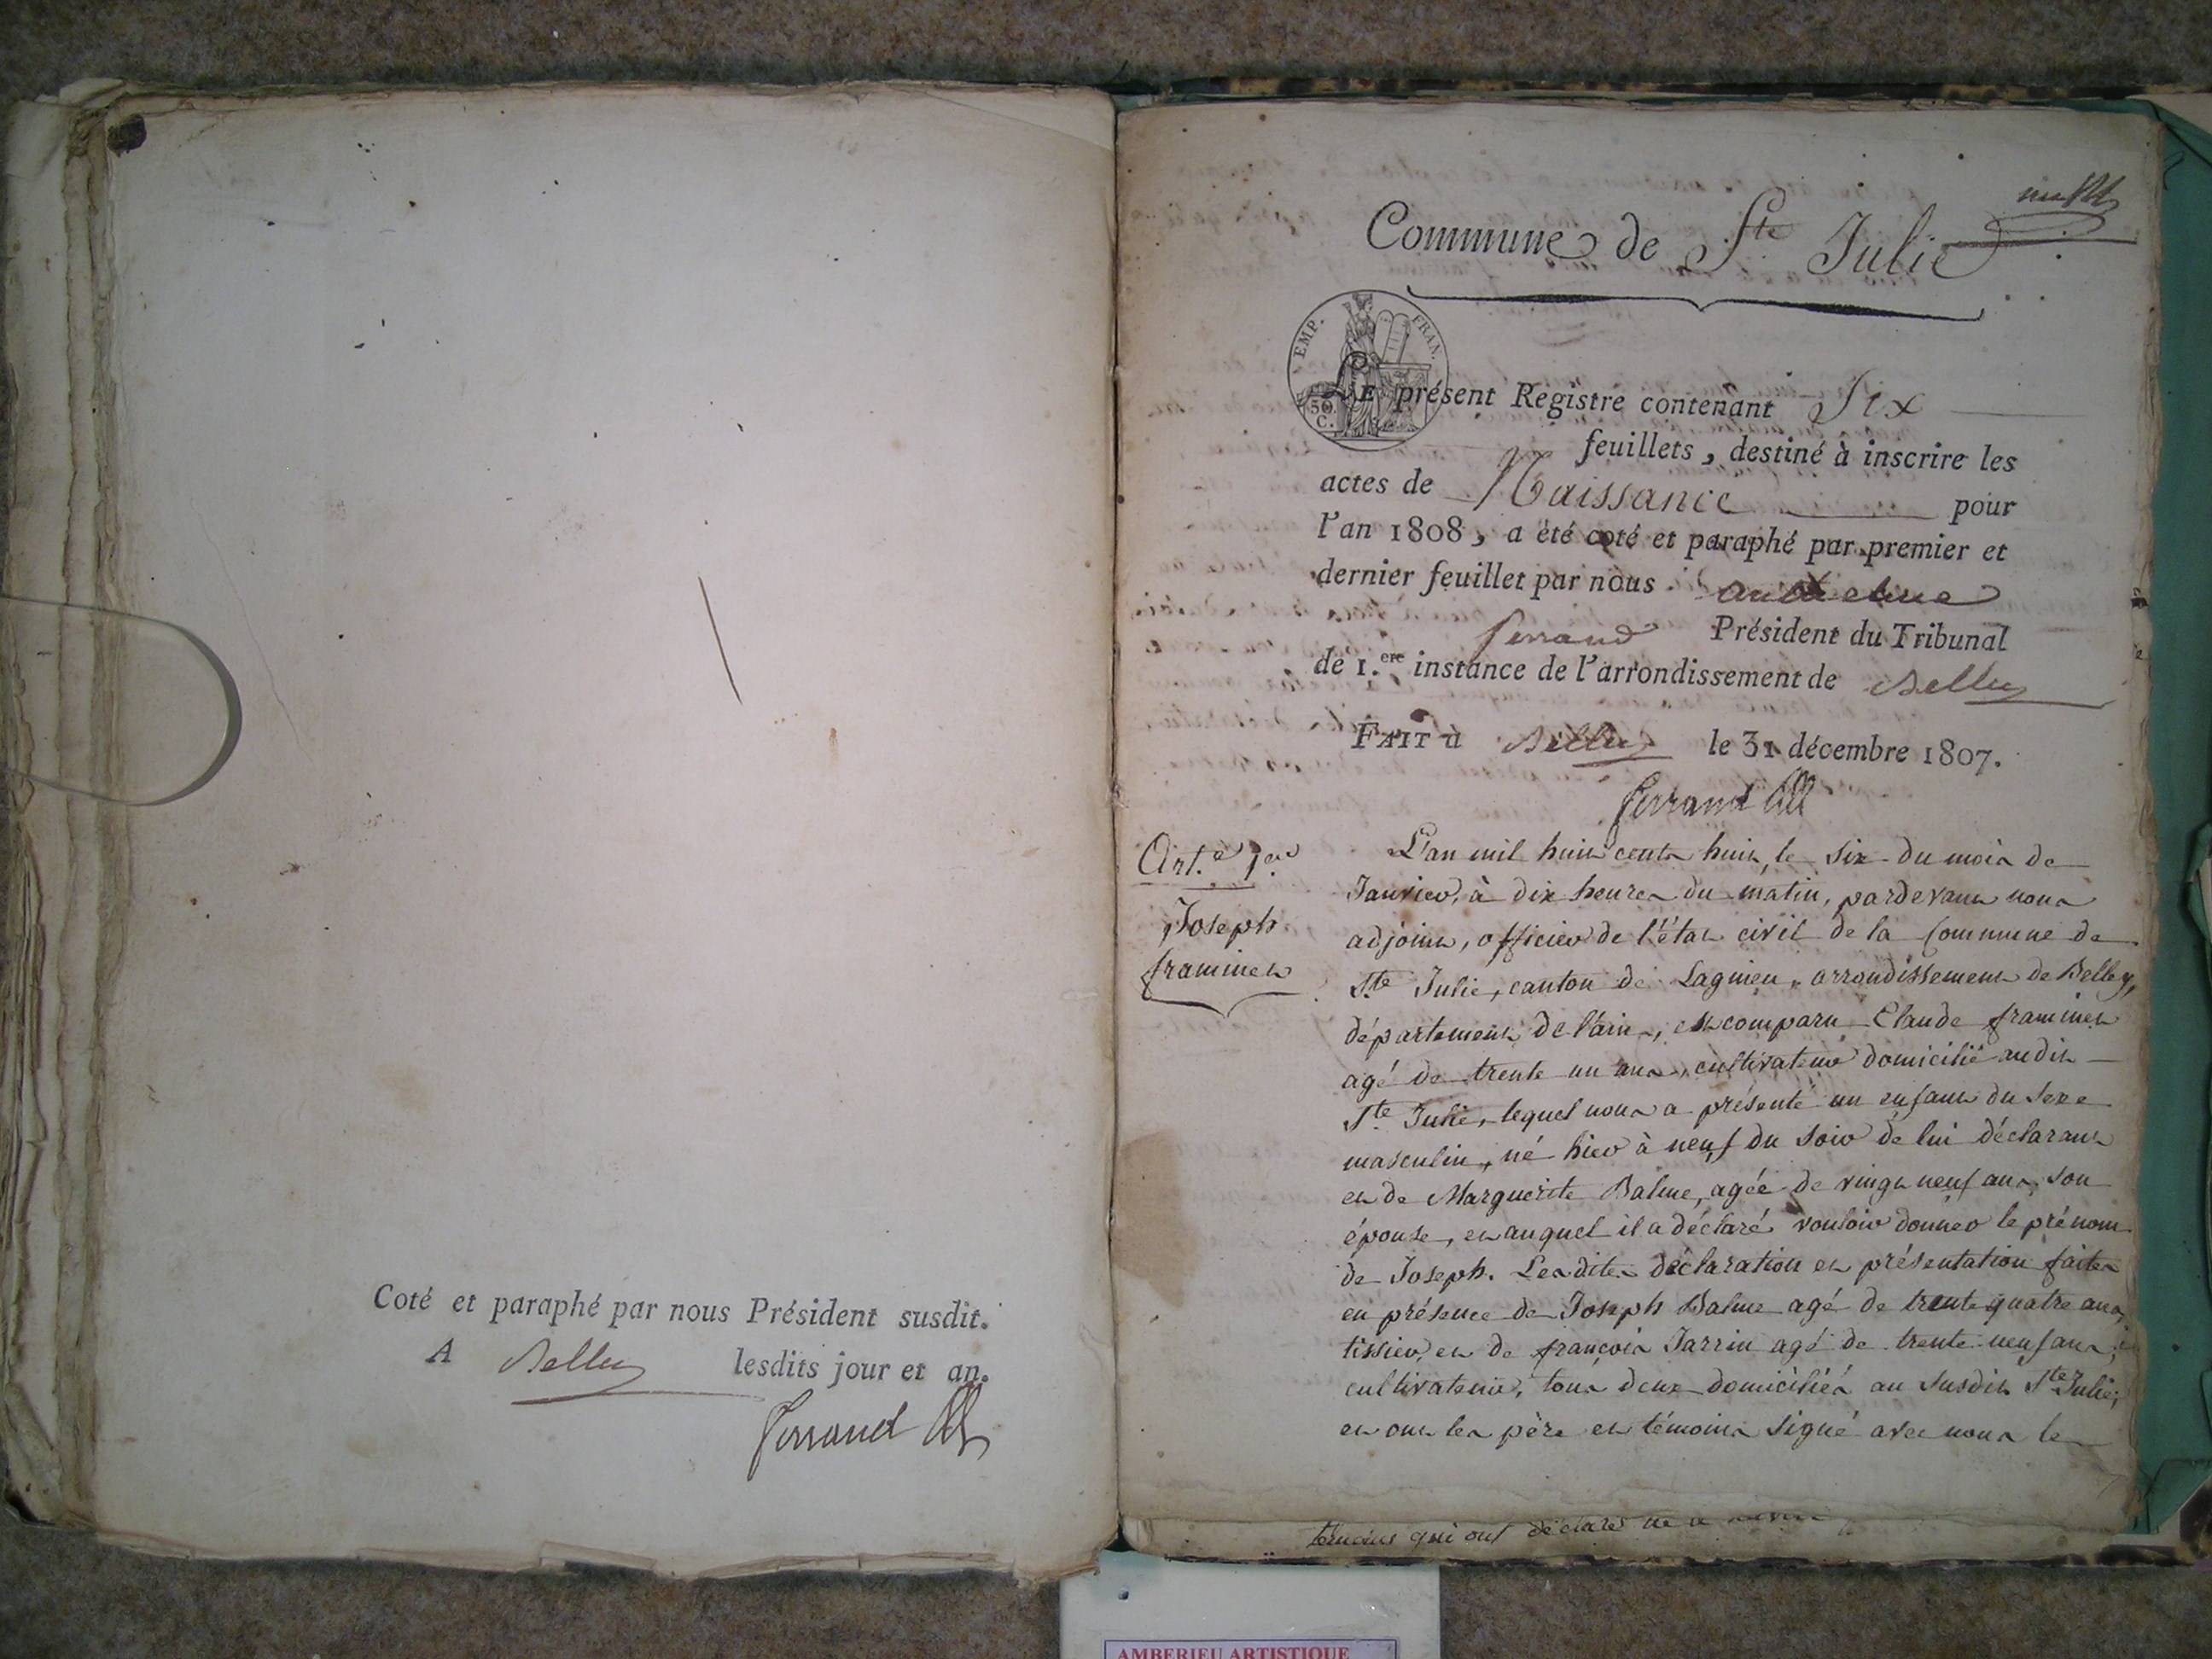 Coté et paraphé par nous Président susdit.
A Belley lesdits jour et an.
Ferrand
Commune de Ste Julie
EMP. FRAN.
50. C.
LE présent Registre contenant Six
feuillets, destiné à inscrire les
actes de Naissance pour
l'an 1808, a été coté et paraphé par premier et
dernier feuillet par nous Anthelme
ferrand Président du Tribunal
de 1.ere instance de l'arrondissement de Belley
FAIT à Belley le 31 décembre 1807.
ferrand
Art.e 1er
Joseph
framinet
L'an mil huit cents huit, le six du mois de
Janvier, à dix heures du matin, pardevant nous
adjoint, officier de l'état civil de la Commune de
Ste Julie, canton de Lagnieu, arrondissement de Belley,
département de l'ain, est comparu Claude framinet
agé de trente un ans, cultivateur domicilié audit
Ste Julie, lequel nous a présenté un enfant du sexe
masculin, né hier à neuf du soir de lui déclarant
et de Marguerite Balme, agée de vingt neuf ans, son
épouse, et auquel il a déclaré vouloir donner le prénom
de Joseph. Les dites déclaration et présentation faites
en présence de Joseph Balme agé de trente quatre ans,
tissier, et de françois Jarrin agé de trente neuf ans,
cultivateur, tous deux domiciliés au susdit Ste Julie;
et ont les père et témoins signé avec nous le
témoins qui ont déclaré ne
AMBERIEU ARTISTIQUE